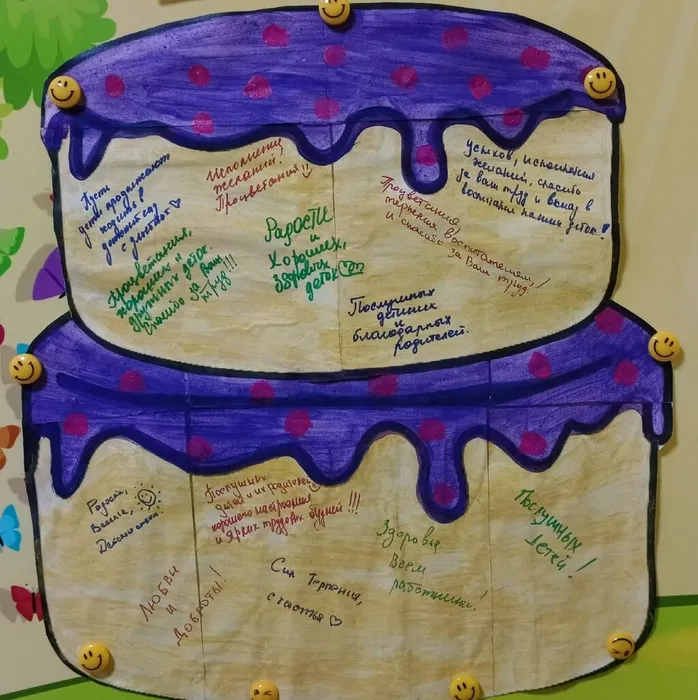 Пусть
дети продолжают
ходить в
детский сад
с улыбкой ♡
Исполнения
желаний!
Процветания!!
Успехов, исполнения
желаний, спасибо
за ваш труд и вклад в
воспитание наших деток!
Процветания,
терпения воспитателям,
и спасибо за Ваш труд!
Радости
и
Хороших,
здоровых
деток
Процветания,
хороших и
дружных деток.
Спасибо за Ваш
труд!!!
Послушных
детишек
и
благодарных
родителей.
Радости,
Веселья,
Детского смеха!
Послушных
детей и их родителей
хорошего настроения
и ярких трудовых будней!!!
Здоровья
Всем
работникам!
Послушных
детей!
Любви
и
Доброты!
Сил, Терпения,
счастья ♡